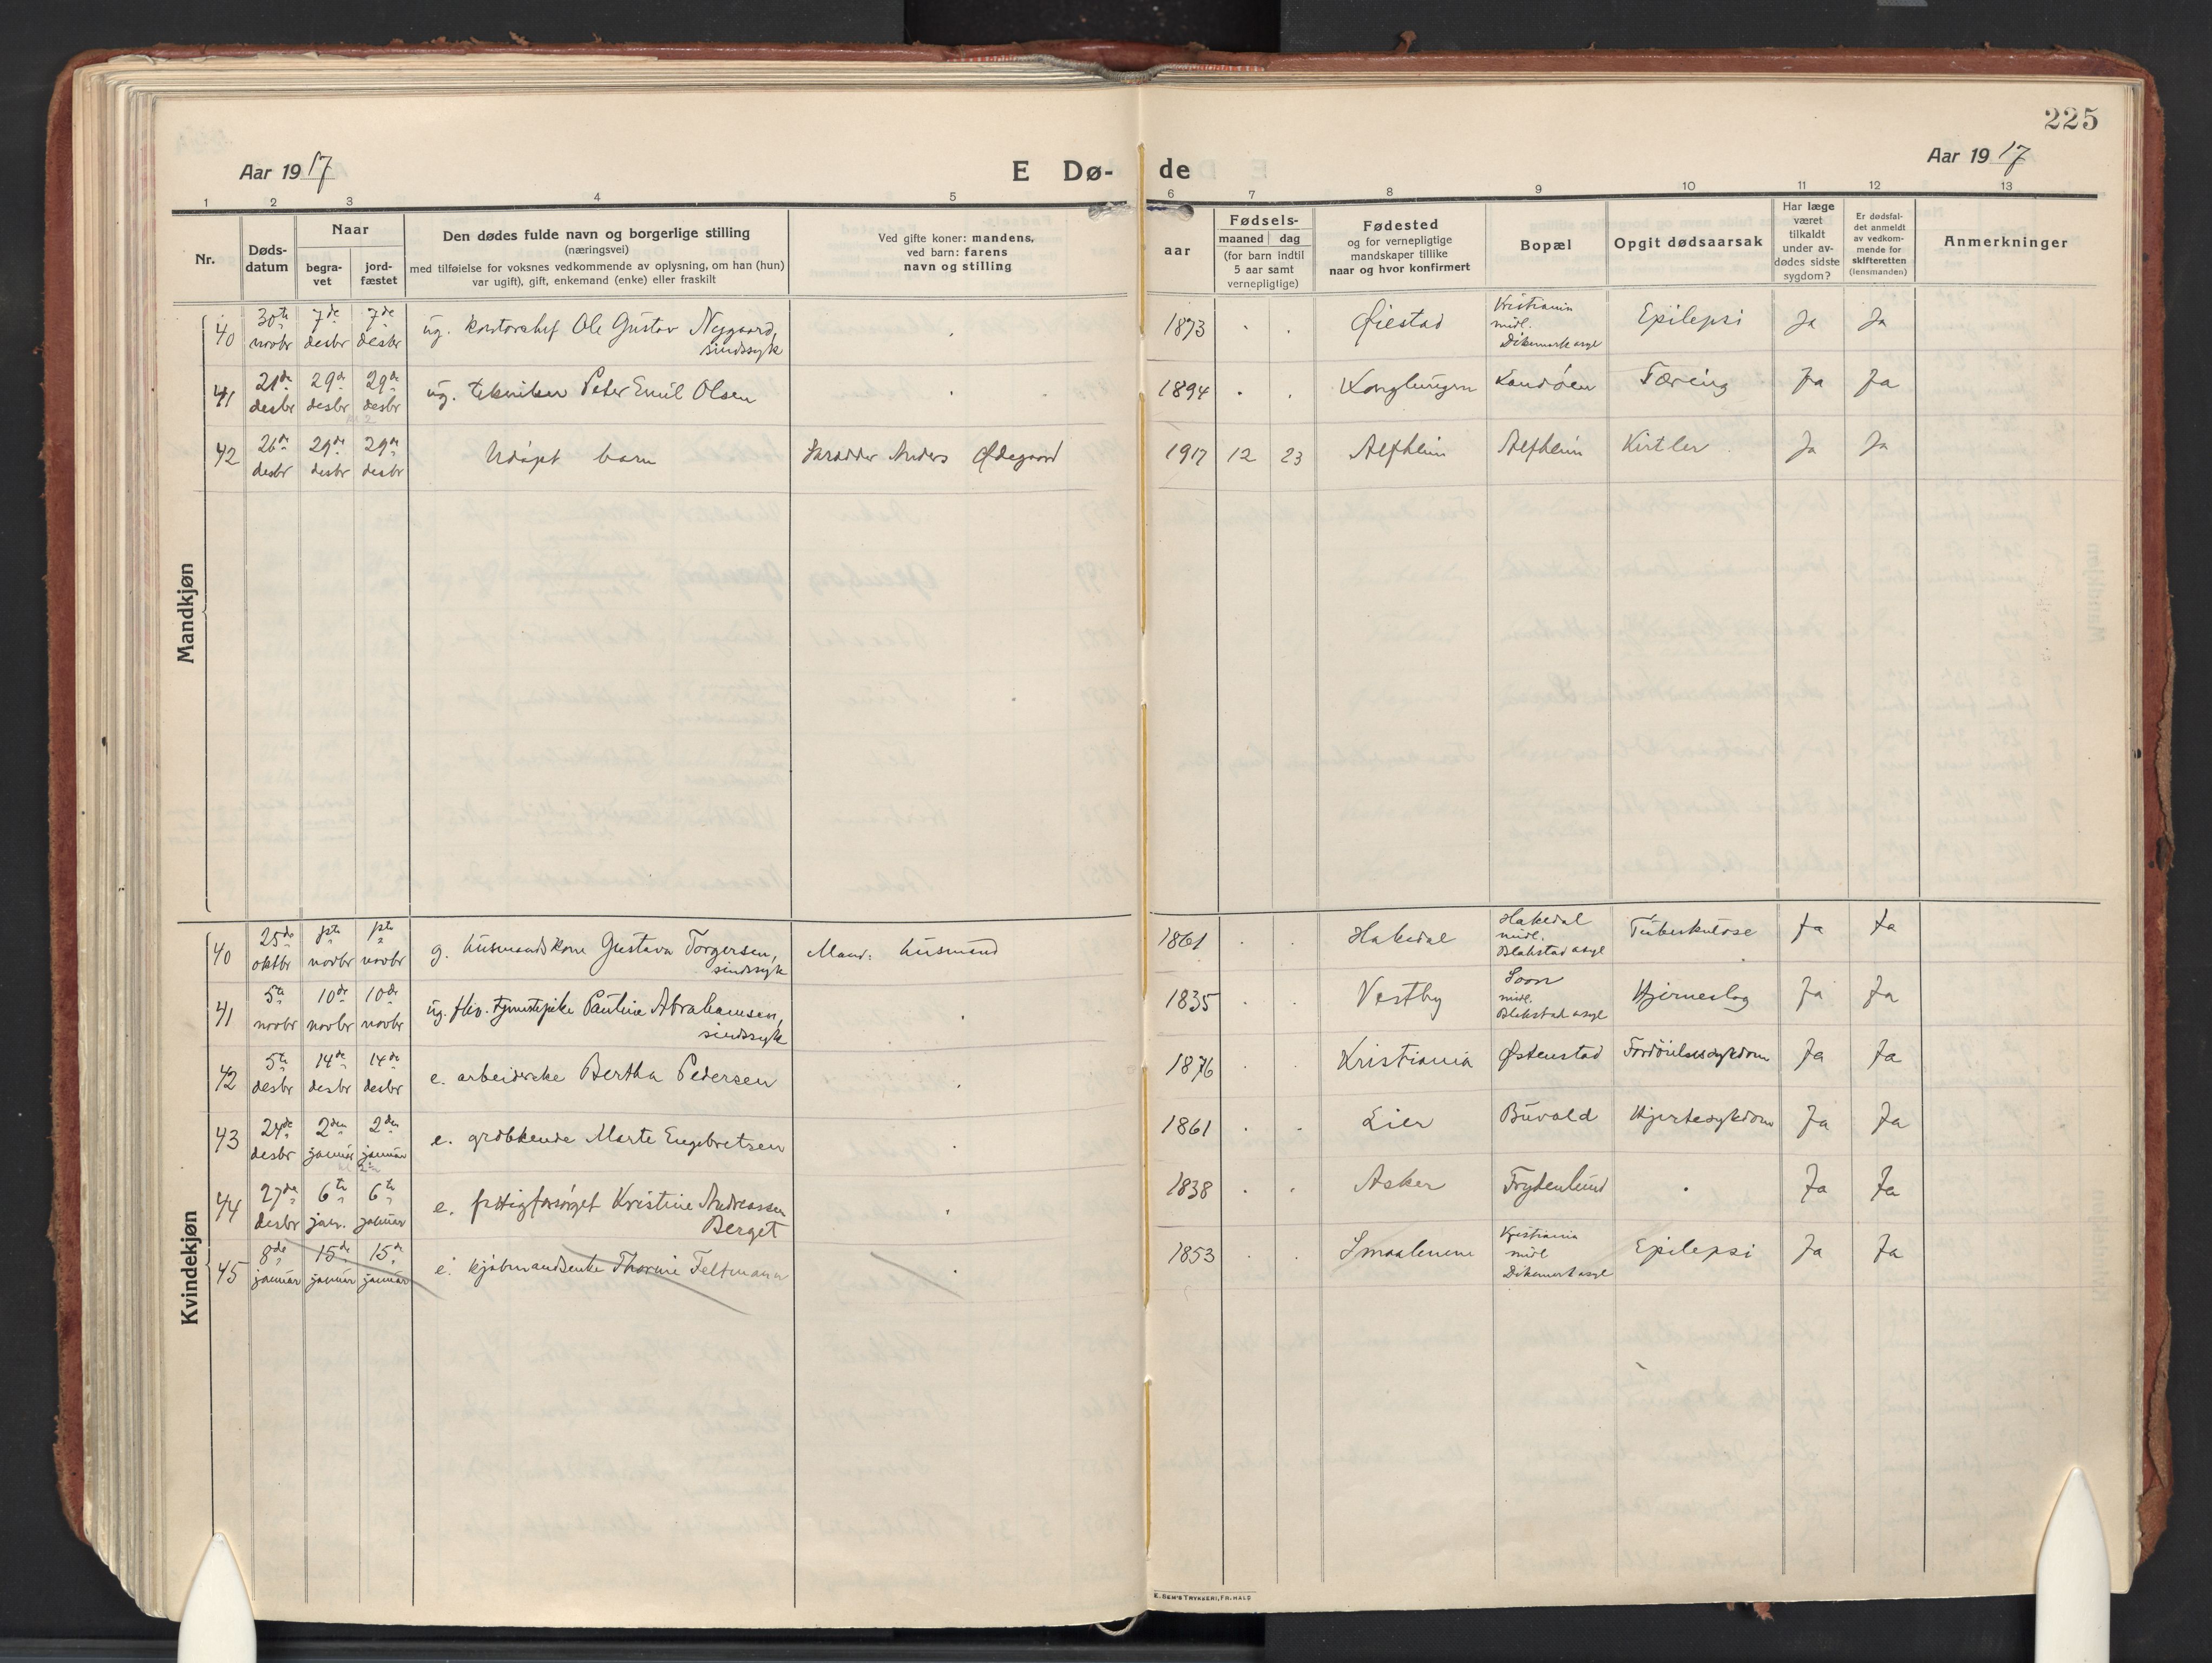 225
Aar 1917
E Dø-
de
Aar 1917
1 2 3 4 5 6 7 8 9 10 11 12 13
Nr.
Døds-
datum
Naar
begra-
vet
jord-
fæstet
Den dødes fulde navn og borgerlige stilling
(næringsvei)
med tilføielse for voksnes vedkommende av oplysning, om han (hun)
var ugift), gift, enkemand (enke) eller fraskilt
Ved gifte koner: mandens,
ved barn: farens
navn og stilling
aar
Fødsels-
maaned dag
(for barn indtil
5 aar samt
vernepligtige)
Fødested
og for vernepligtige
mandskaper tillike
naar og hvor konfirmert
Bopæl
Opgit dødsaarsak
Har læge
været
tilkaldt
under av-
dødes sidste
sygdom?
Er dødsfal-
det anmeldt
av vedkom-
mende for
skifteretten
(lensmanden)
Anmerkninger
Mandkjøn
40 30te novbr 7de desbr 7de desbr ug. kontorchef Ole Gustav Nygaard, sindssyk . 1873 . . Øiestad Kristiania midl. Dikemark asyl Epilepsi Ja Ja
41 21de desbr 29de desbr 29de desbr ug. tekniker Peter Emil Olsen . 1894 . . Konglungen Tæring Ja Ja
42 26de desbr 29de desbr 29de desbr Udøpt barn Skrædder Anders Ødegaard 1917 12 23 Alfheim Alfheim Kirtler. Ja Ja
Kvindekjøn
40 25de oktbr novbr novbr g. husmandskone Gustava Torgersen, sindssyk Mand: husmand 1861 . . Hakedal Hakedal midl. Blakstad asyl Tuberkulose Ja Ja
41 5te novbr 10de novbr 10de novbr ug. fhv. tjenestepike Pauline Abrahamsen, sindssyk . 1835 . . Vestby Soon midl. Blakstad asyl Hjerneslag Ja Ja
42 5te desbr 14de desbr 14de desbr e. arbeiderske Bertha Pedersen . 1876 . . Kristiania Østenstad Fordøielsessykdom Ja Ja
43 24de desbr 2den januar 2den januar e. Marte Engebretsen . 1861 . . Lier Buvald Hjertesykdom Ja Ja
44 27de desbr 6te jan. 6te januar e. fattigforsørget Kristine Andreassen Berget . 1838 . . Asker Frydenlund . Ja Ja
45 8de januar 15de januar 15de januar e. kjøbmandsenke Thorine Feltmann . 1853 . . Smaalenene Kristiania midl Dikemark asyl Epilepsi Ja Ja
E. SEM'S TRYKKERI, FR.HALD